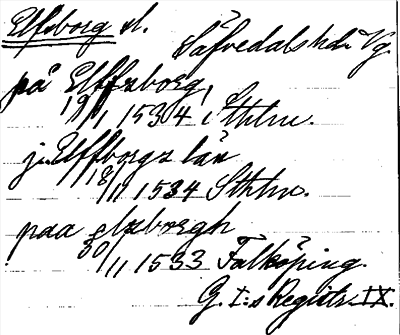 Elfsborg sl.
Säfvedals hd. Vg.
på Elffzborg,
19/1 1534 Sthlm.
j. Elffborgz län
18/11 1534 Sthlm.
paa elzborgh
30/11 1533 Falköping.
G. I:s Registr. IX.